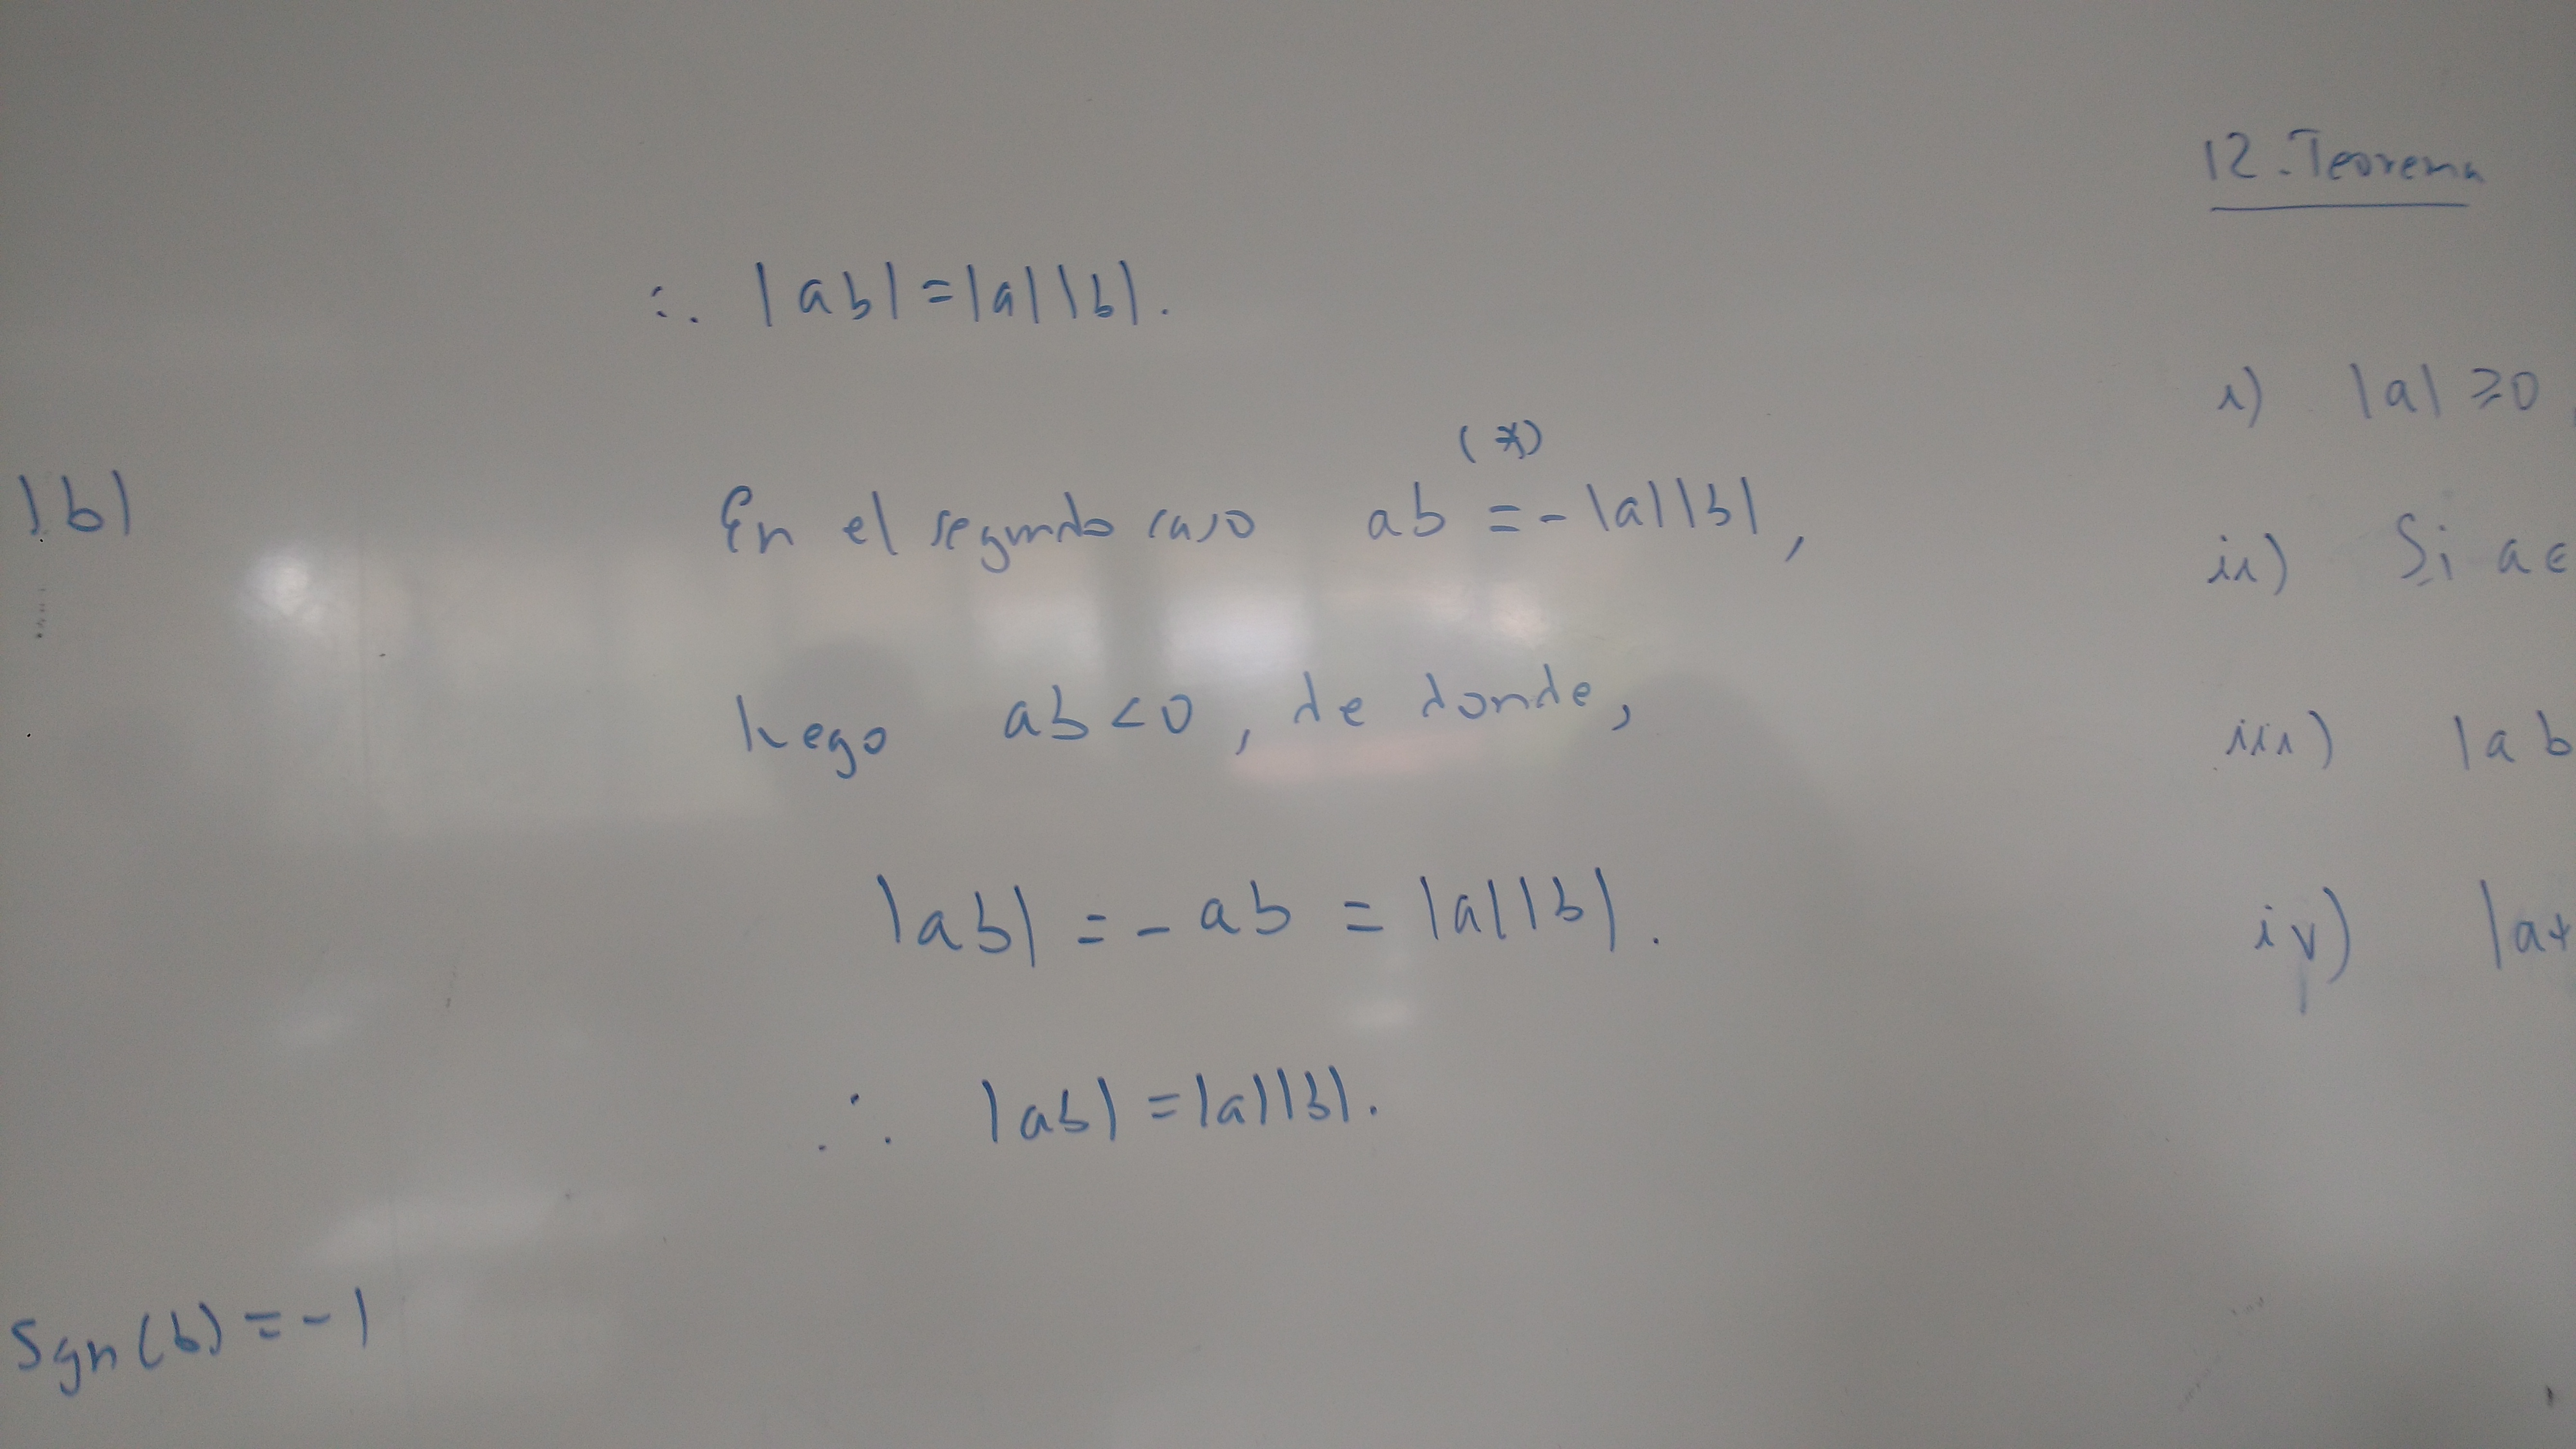 |b|
Sgn(b) = -1
∴ |ab| = |a||b|.
(*)
En el segundo caso ab = -|a||b|,
luego ab < 0, de donde,
|ab| = -ab = |a||b|.
∴ |ab| = |a||b|.
12. Teorema
i) |a| ≥ 0
ii) Si a ∈
iii) |ab
iv) |a+